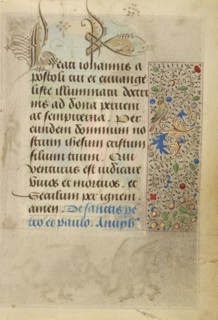 Beati iohannis a
postoli tui et euange
liste illuminata doctri
nis ad dona perueni
at sempiterna. Per
eundem dominum no
strum ihesum cristum
filium tuum. Qui
venturus est iudicare
viuos et mortuos. et
seculum per ignem.
amen. De sanctis pe
tro et paulo. Antiph